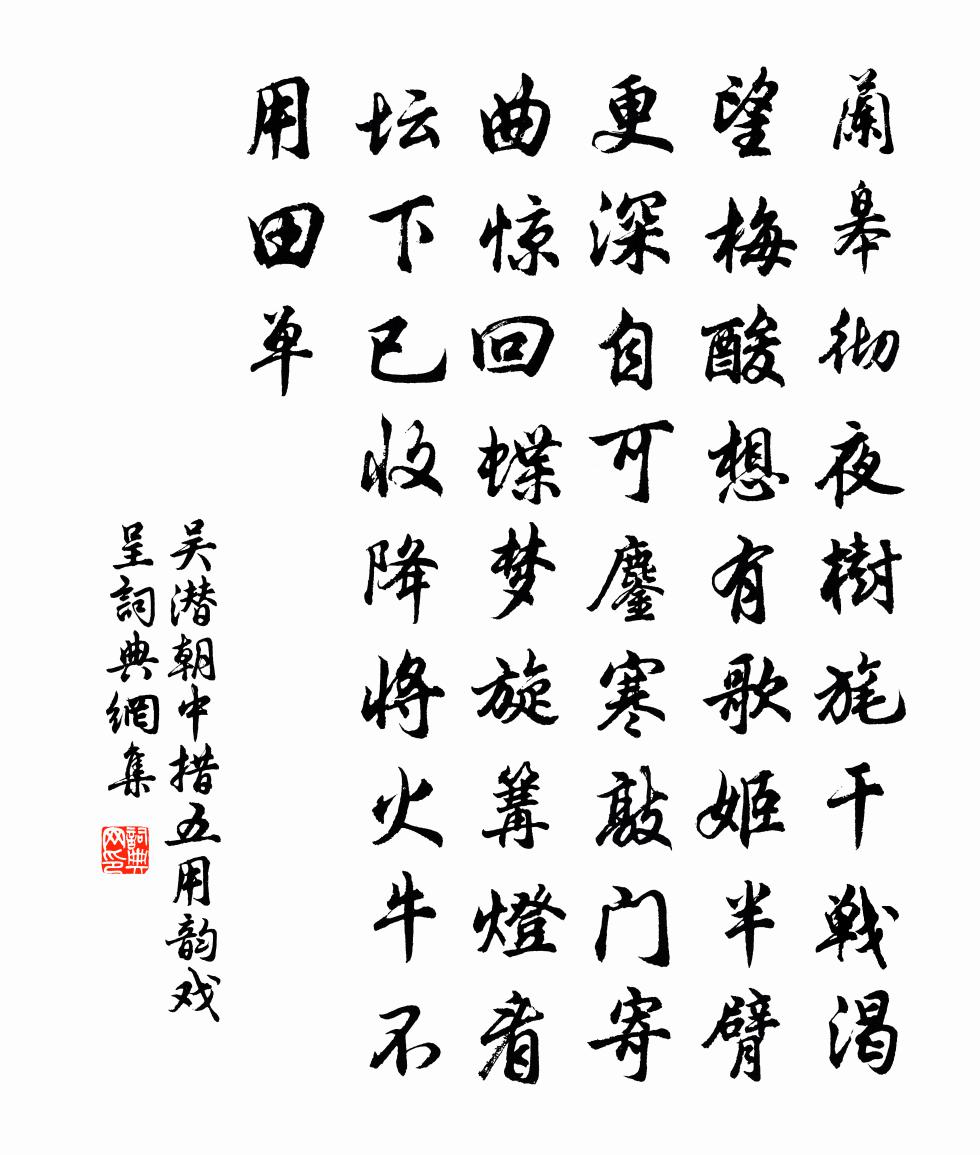 蘭皋彻夜樹旄干戰渴
望梅酸想有歌姬半臂
更深自可鏖寒敲门寄
曲惊回蝶梦旋篝燈看
坛下已收降将火牛不
用田单
吴潜朝中措五用韵戏
呈詞典網集
詞典网印